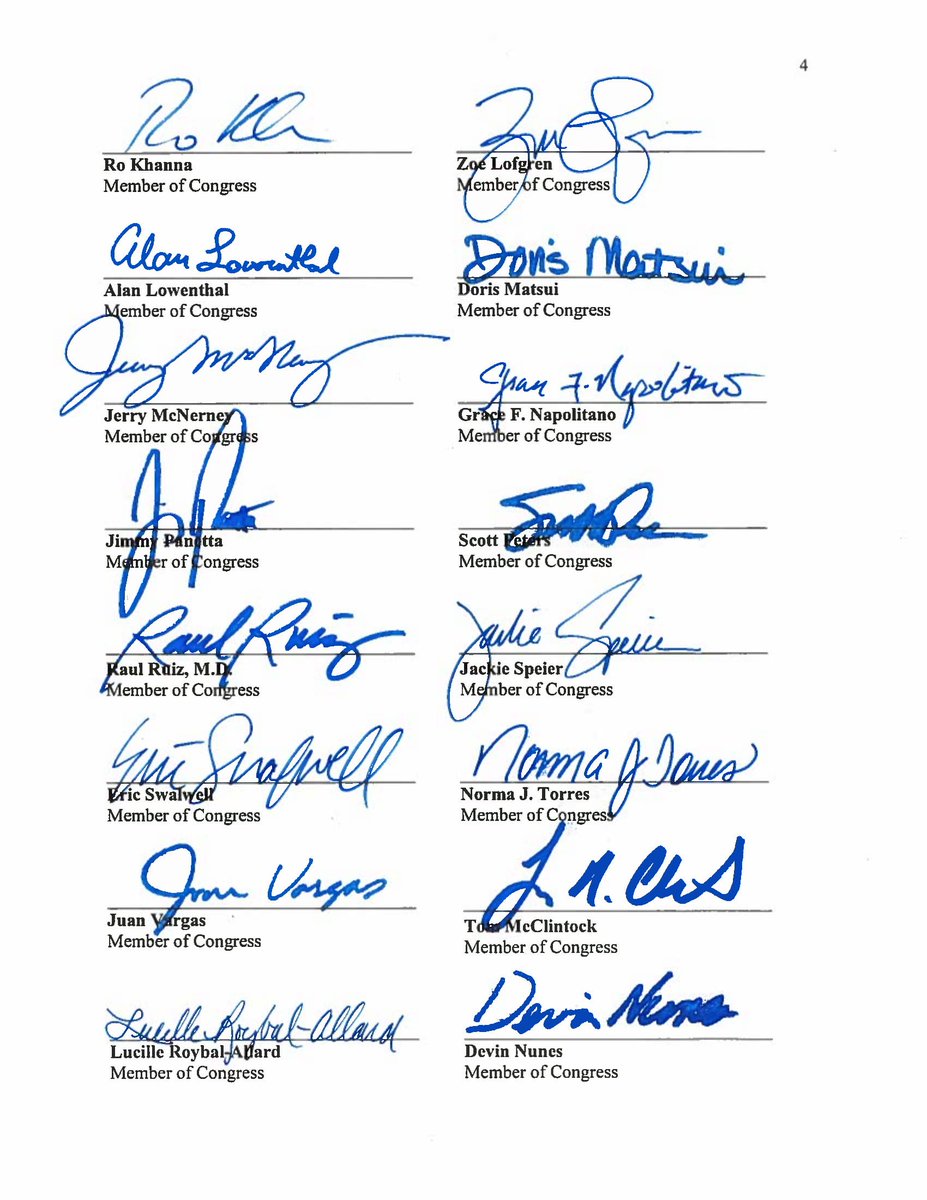 4
Ro
Ro Khanna
Member of Congress
Zoe Lofgren
Member of Congress
Alan Lowenthal
Alan Lowenthal
Member of Congress
Doris Matsui
Doris Matsui
Member of Congress
Jerry McNerney
Jerry McNerney
Member of Congress
Grace F. Napolitano
Grace F. Napolitano
Member of Congress
Jimmy Panetta
Member of Congress
Scott Peters
Member of Congress
Raul Ruiz
Raul Ruiz, M.D.
Member of Congress
Jackie Speier
Jackie Speier
Member of Congress
Eric Swalwell
Eric Swalwell
Member of Congress
Norma J Torres
Norma J. Torres
Member of Congress
Juan Vargas
Juan Vargas
Member of Congress
Tom McClintock
Member of Congress
Lucille Roybal-Allard
Lucille Roybal-Allard
Member of Congress
Devin Nunes
Devin Nunes
Member of Congress